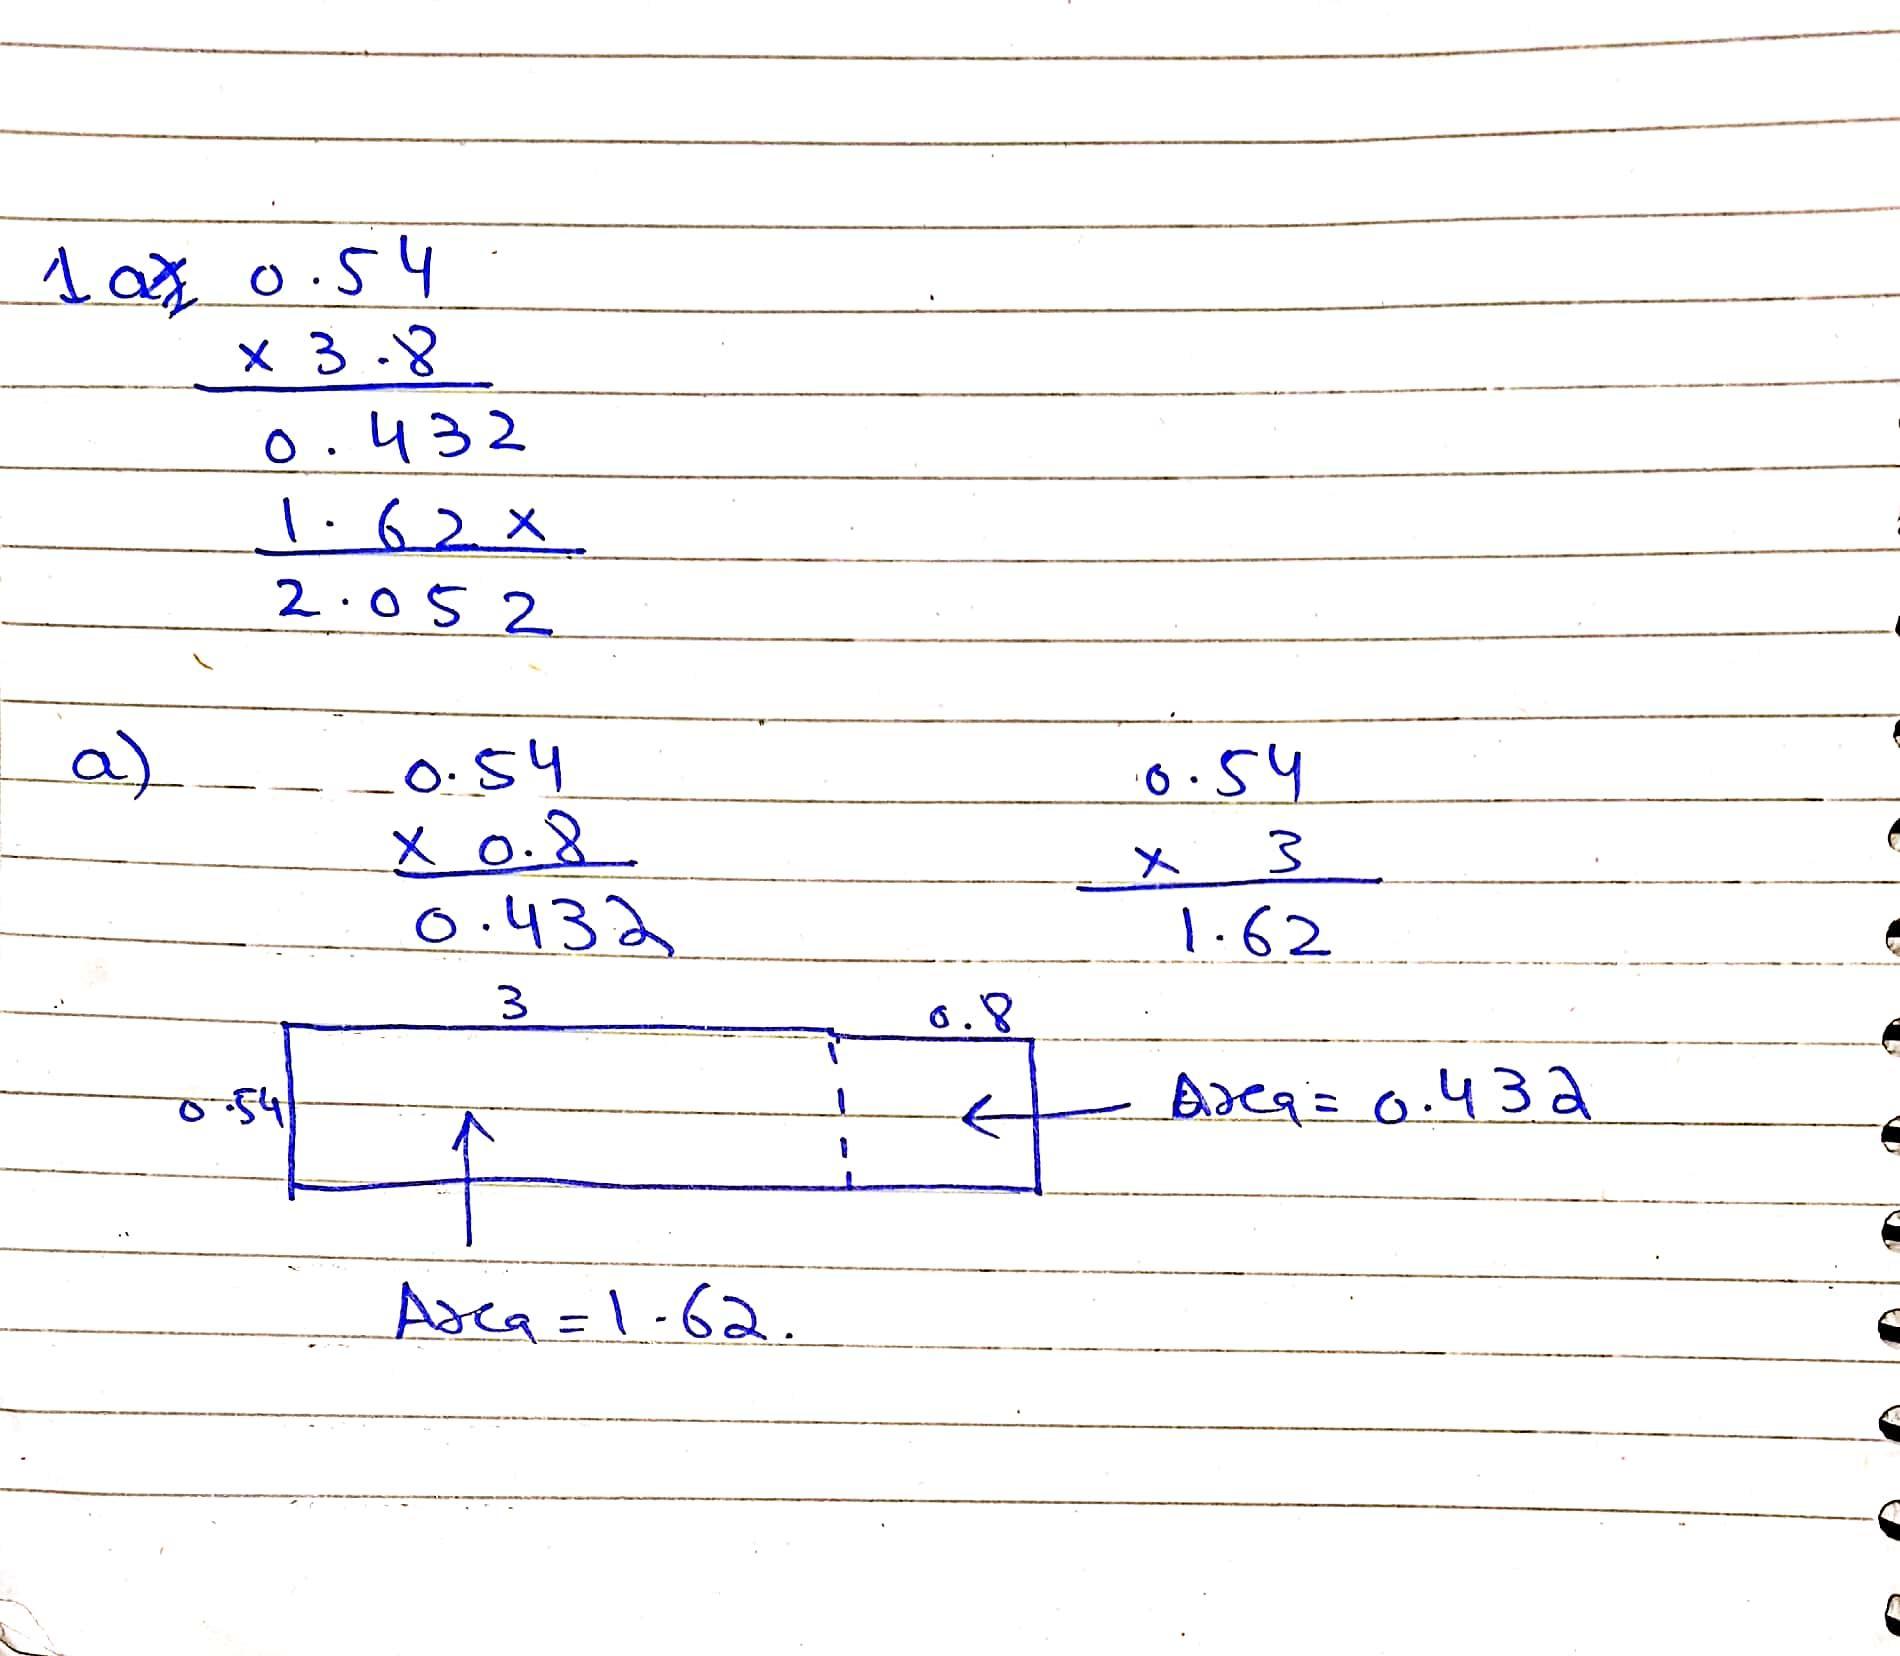 1 a 0.54
x 3.8
0.432
1.62 x
2.052
a) 0.54 0.54
x 0.8 x 3
0.432 1.62
3 0.8
0.54 Area = 0.432
Area = 1.62.